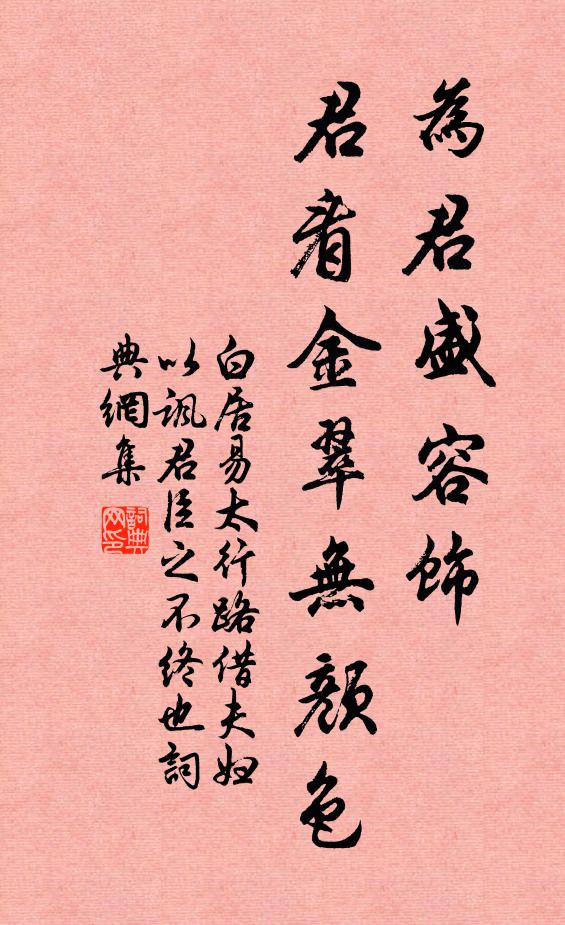 為君盛容飾
君看金翠無顏色
白居易太行路借夫婦
以諷君臣之不終也詞
典網集
詞典
网印